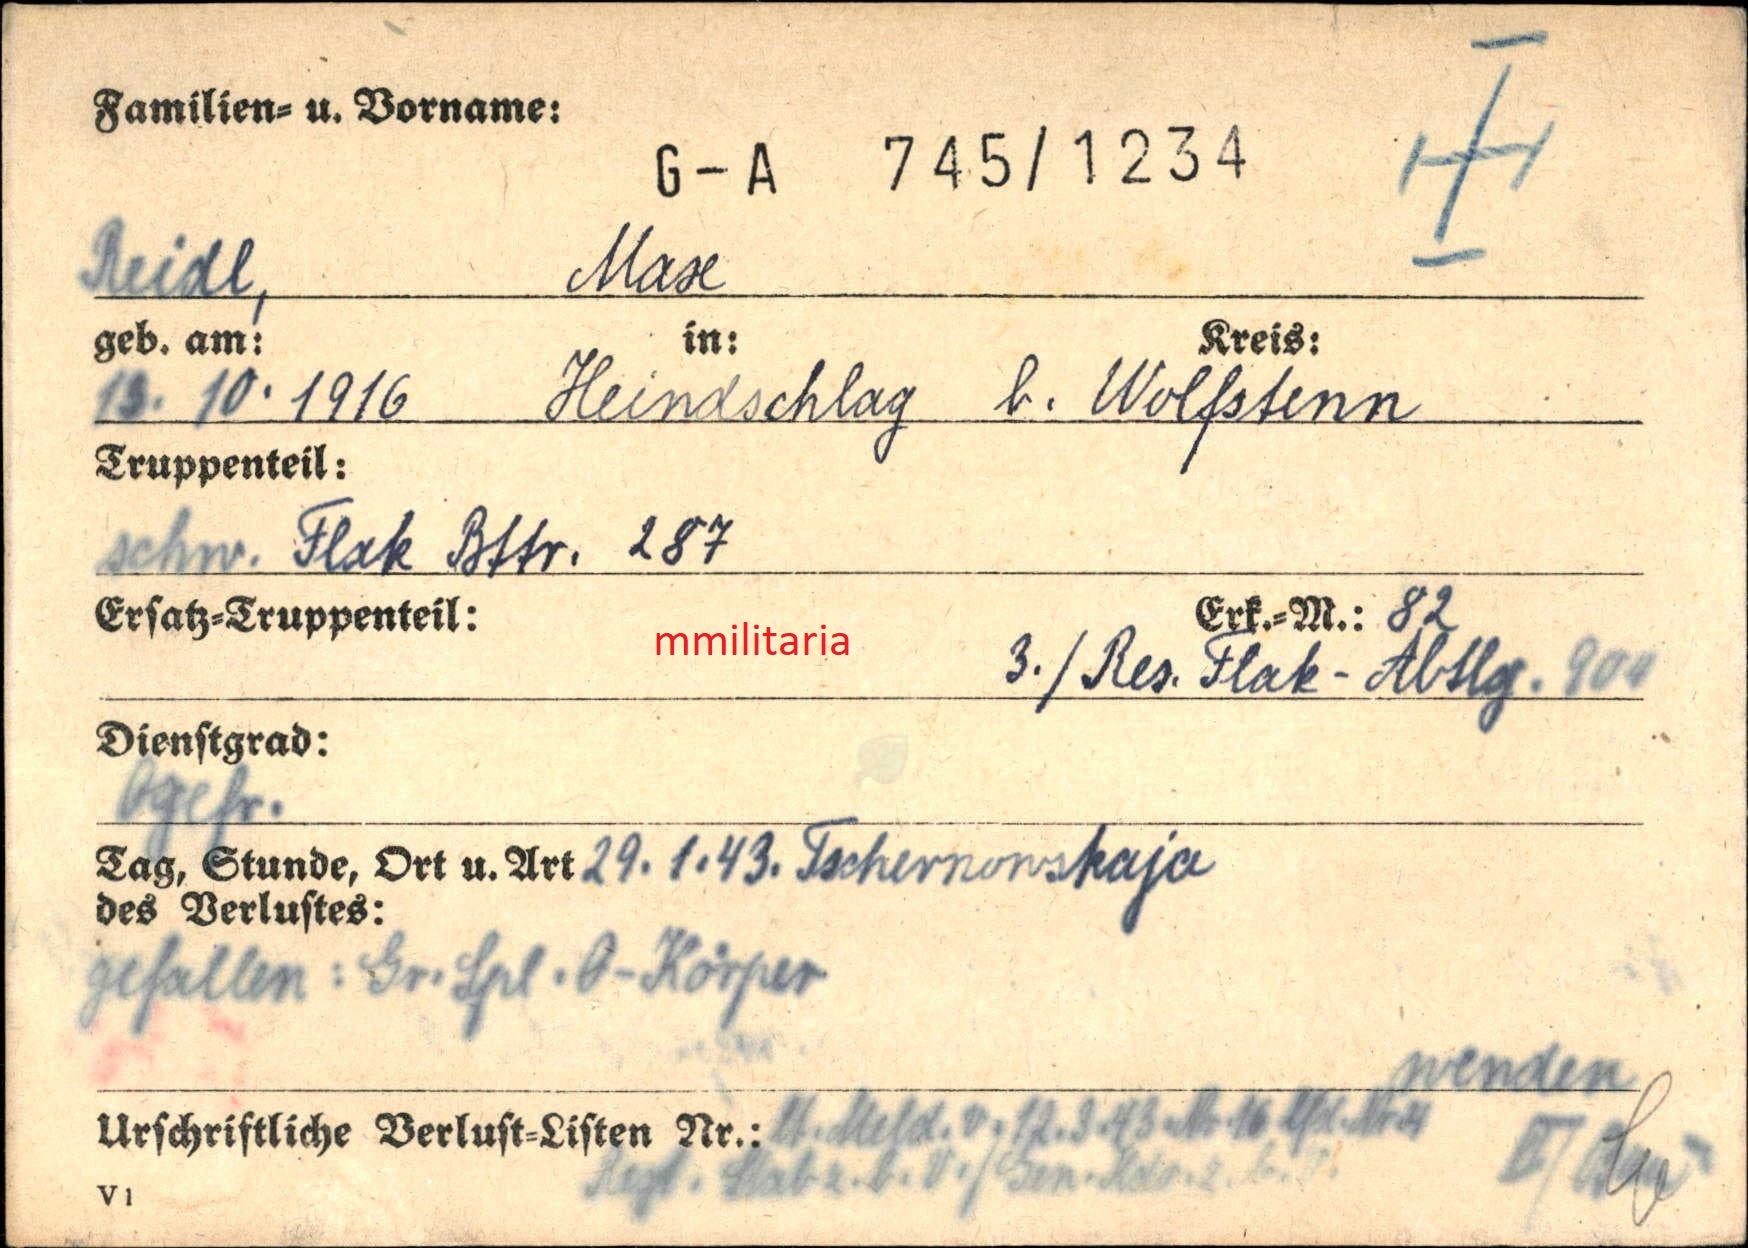 Familien- u. Vorname:
G-A 745/1234
Reidl, Max
geb. am: in: Kreis:
13. 10. 1916 Heindschlag b. Wolfstenn
Truppenteil:
schw. Flak Bttr. 287
Ersatz-Truppenteil: Erk.-M.: 82
mmilitaria
3./Res. Flak-Abtlg. 904
Dienstgrad:
Ogefr.
Tag, Stunde, Ort u. Art 29. 1. 43. Tschernowskaja
des Verlustes:
gefallen: Gr. Spl. O-Körper
wenden
Urschriftliche Verlust-Listen Nr.: v. 12.3.43 Nr. 16
V 1